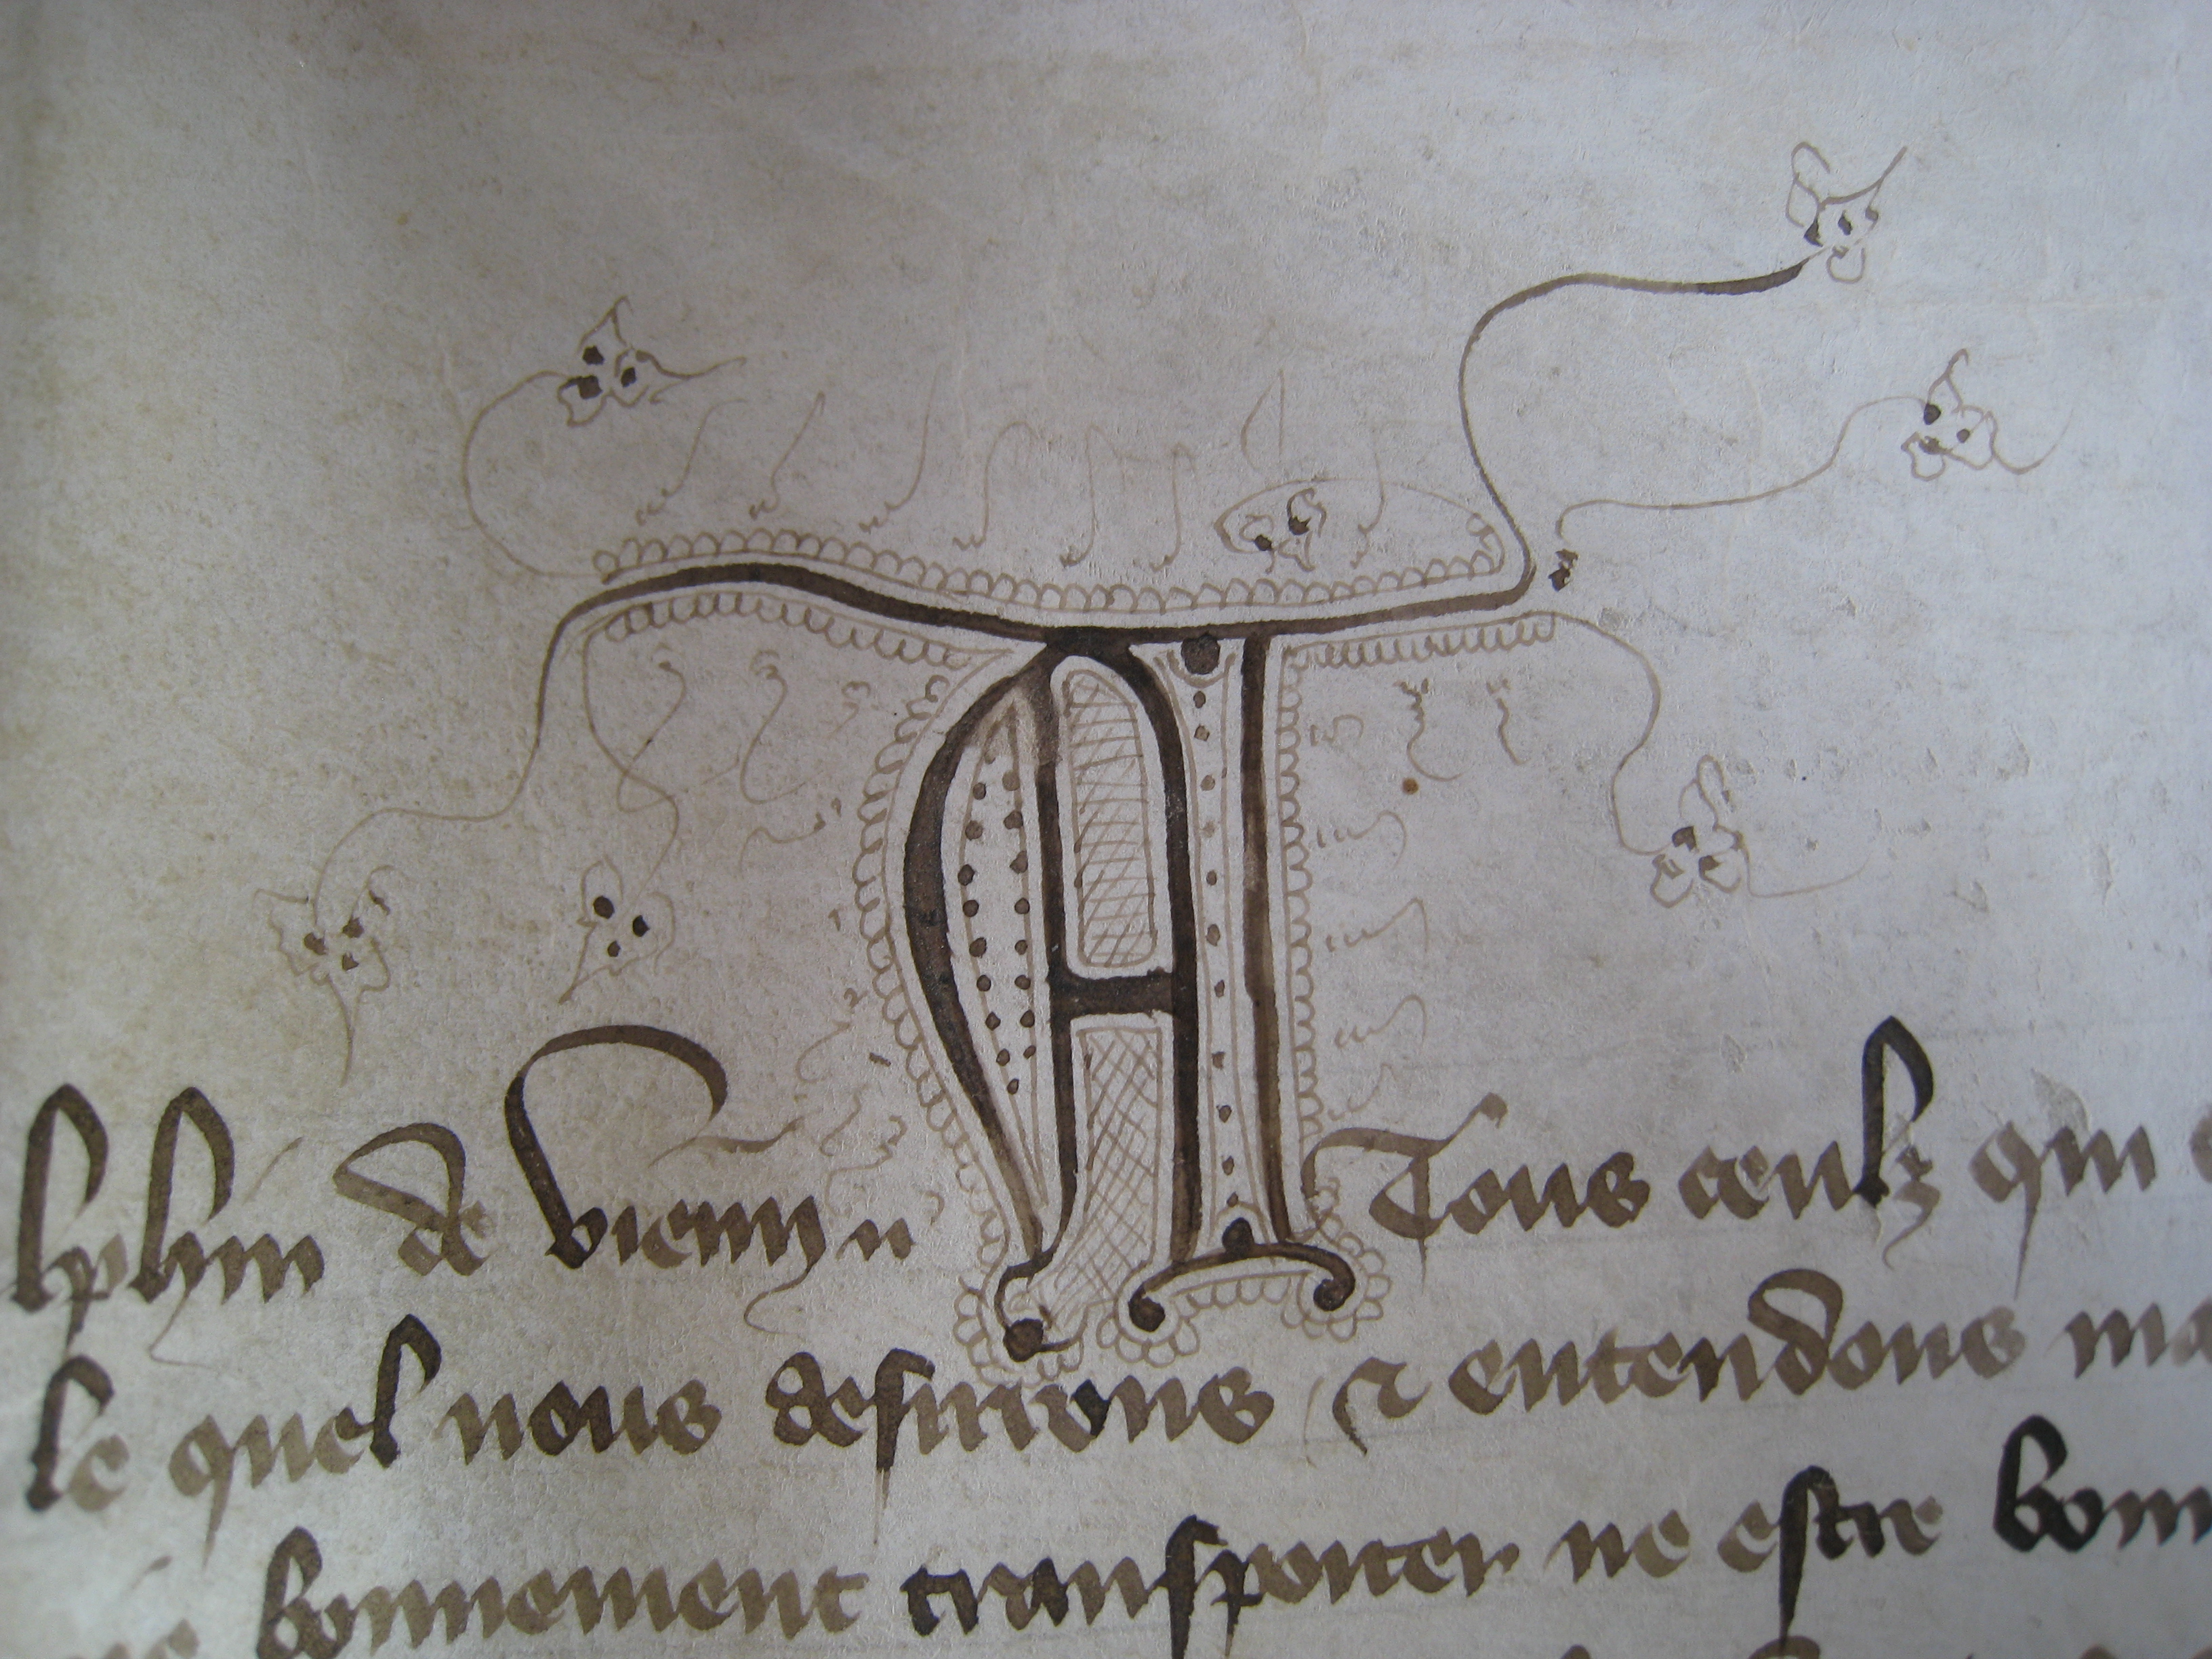 lphin de vienn A Tous ceulz qui
le quel nous desirrons et entendons
bonnement transporter ne estre bonn